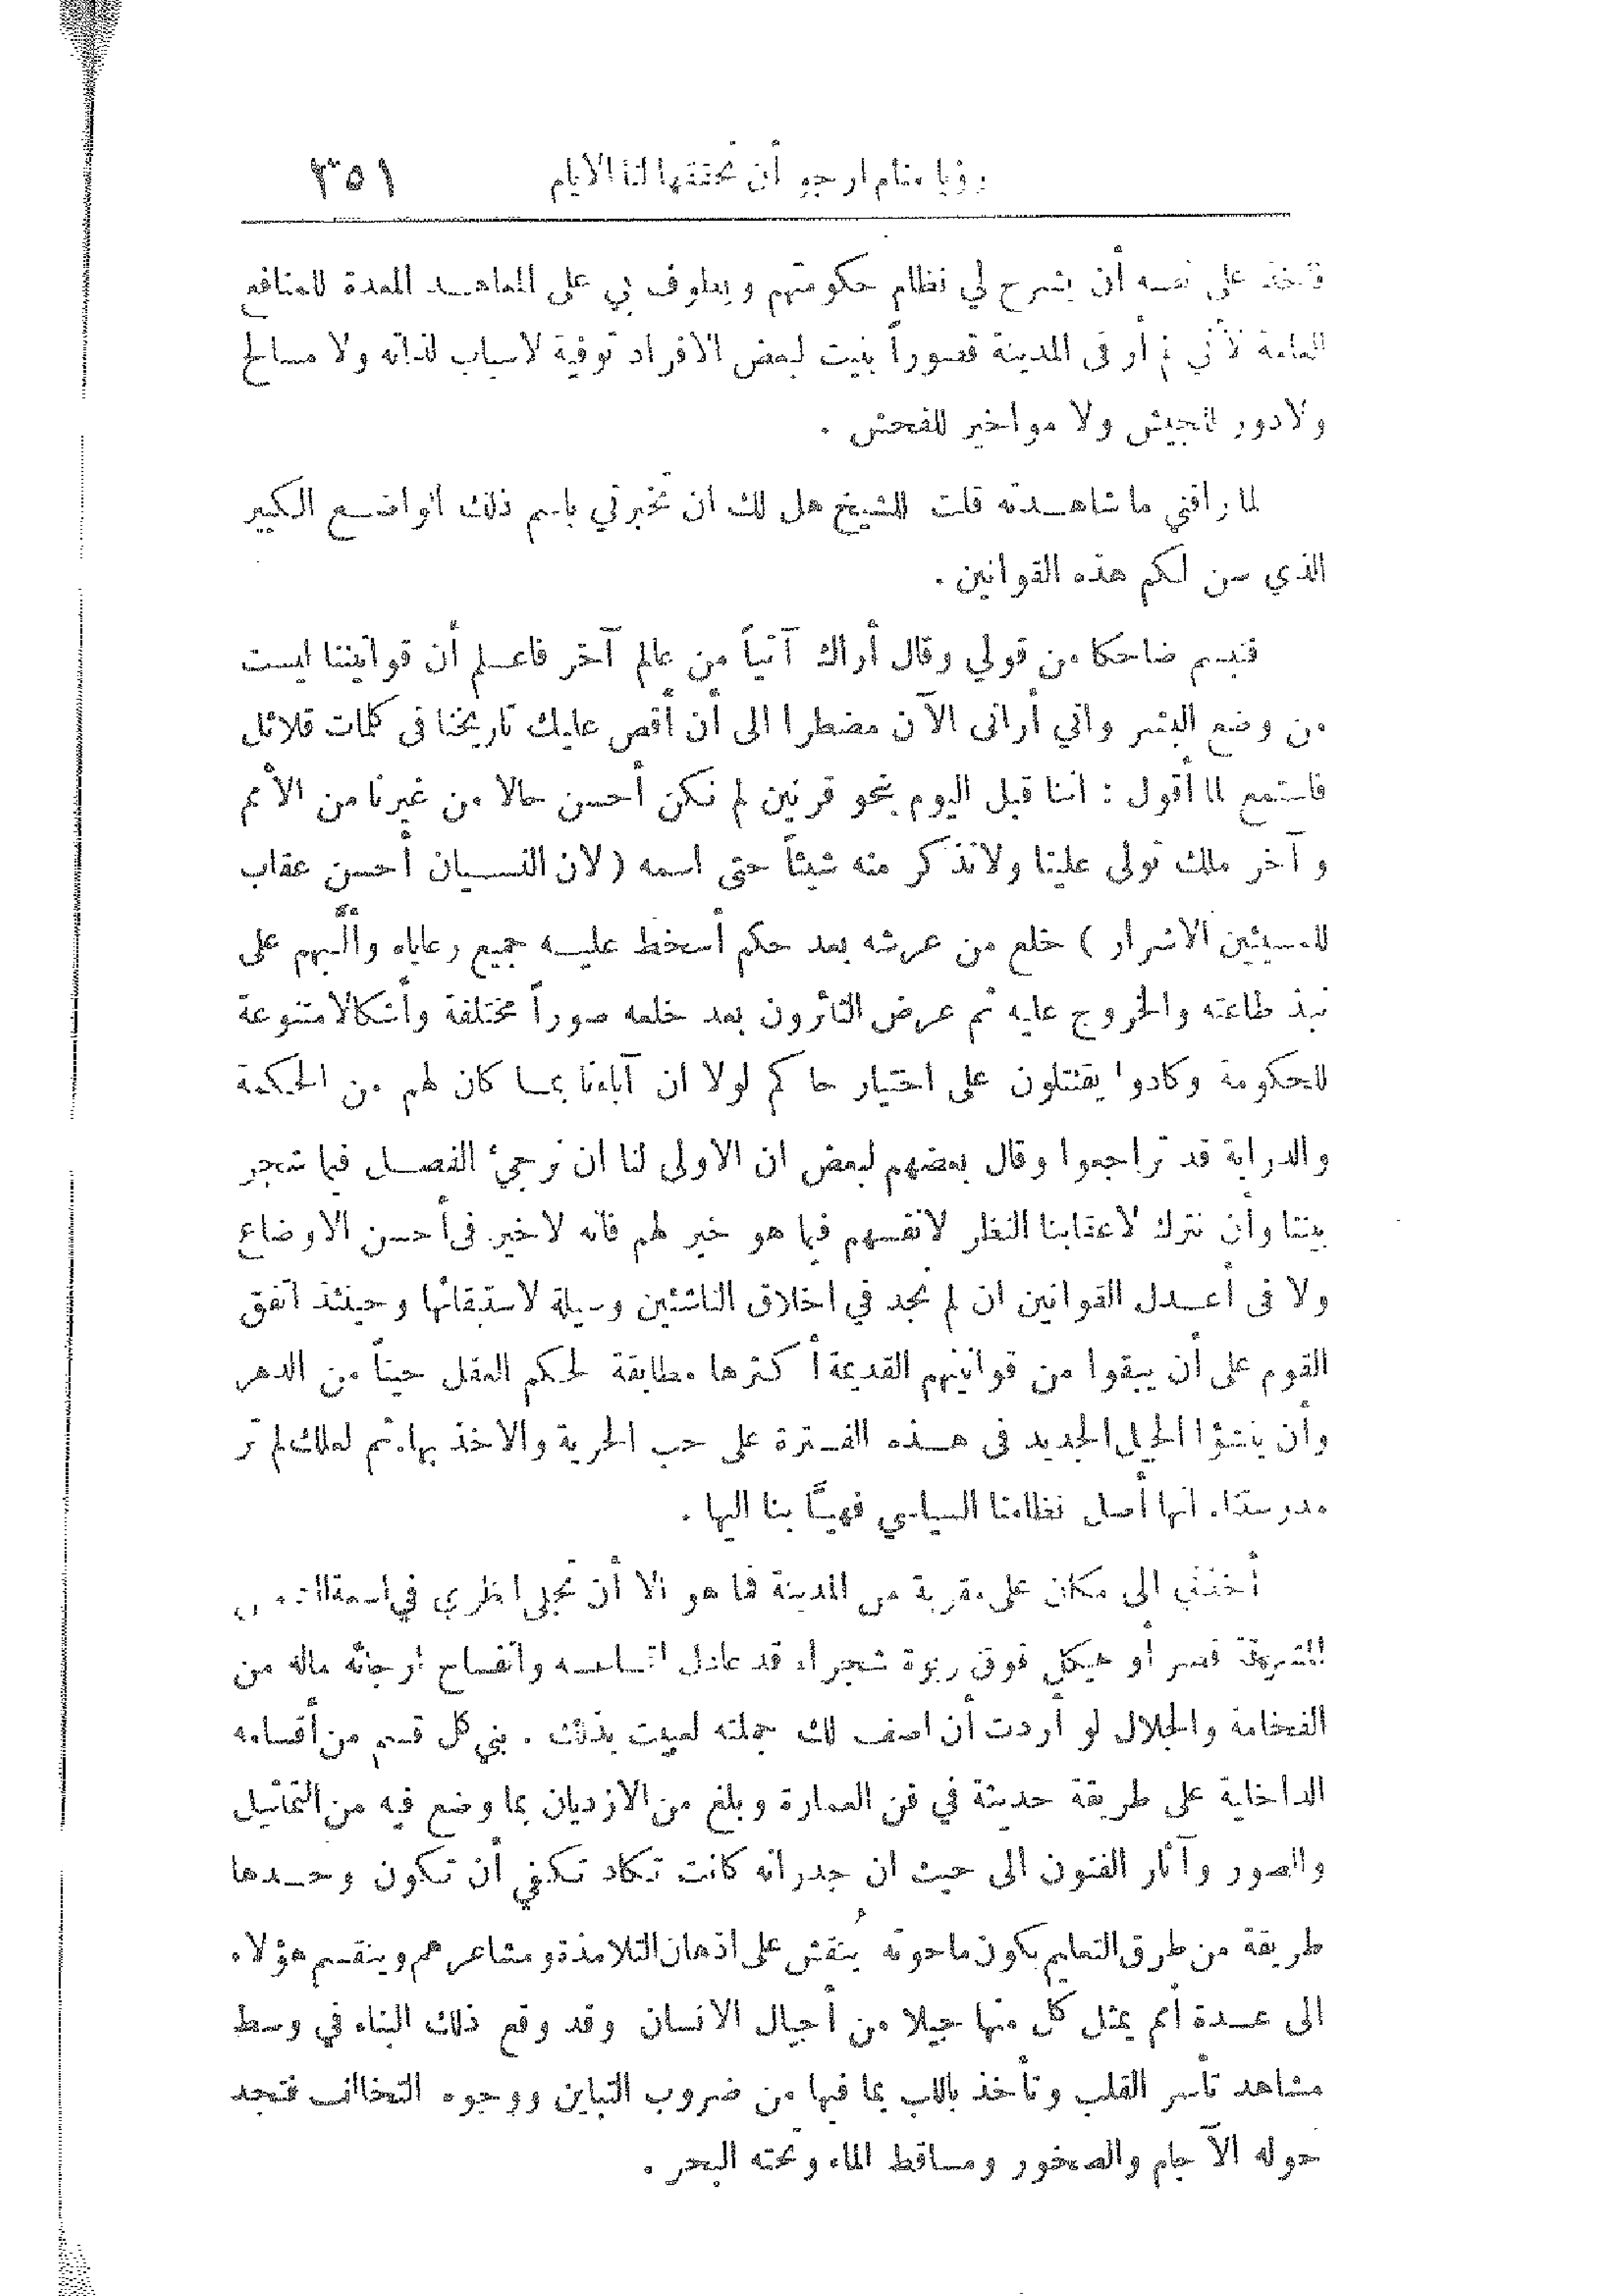 رؤيا منام ارجو أن تحققها لنا الايام ٣٥١
على نفسه أن يشرح لي نظام حكومتهم ويطوف بي على المعاهـد المعدة للمنافع
العامة لأني لم أر فى المدينة قصوراً بنيت لبعض الافراد توفية لاسباب لذاته ولا مسالح
ولا دور للجيش ولا مواخير للفحش .
لما راقني ما شاهـدته قلت للشيخ هل لك ان تخبرني باسم ذلك الواضـع الكبير
الذي سن لكم هذه القوانين .
فتبسم ضاحكا من قولي وقال أراك آتياً من عالم آخر فاعـلم أن قوانيننا ليست
من وضع البشر واني أرانى الآن مضطرا الى أن أقص عليك تاريخنا فى كلمات قلائل
فاستمع لما أقول : اننا قبل اليوم بنحو قرنين لم نكن أحسن حالا من غيرنا من الأمم
وآخر ملك تولى علينا ولا نذكر منه شيئاً حتى اسمه ( لان النسـيان أحسن عقاب
للمسيئين الاشرار ) خلع من عرشه بعد حكم أسخط عليـه جميع رعاياه وألَّبهم على
نبذ طاعته والخروج عليه ثم عرض الثائرون بعد خلعه صوراً مختلفة وأشكالا متنوعة
للحكومة وكادوا يقتتلون على اختيار حاكم لولا ان آباءنا بمـا كان لهم من الحكمة
والدراية قد تراجعوا وقال بعضهم لبعض ان الاولى لنا ان نرجئ الفصـل فيما شجر
بيننا وأن نترك لاعقابنا النظر لانفسهم فيما هو خير لهم فانه لا خير فى أحسن الاوضاع
ولا فى أعـدل القوانين ان لم نجد في اخلاق الناشئين وسيلة لاستبقائها وحينئذ اتفق
القوم على أن يبقوا من قوانينهم القديمة أكثرها مطابقة لحكم العقل حيناً من الدهر
وأن ينشؤا الجيل الجديد فى هـذه الفـترة على حب الحرية والاخذ بها. ثم لعلك لم تر
مدرستنا. انها أصل نظامنا السياسي فهيَّا بنا اليها .
أخذني الى مكان على مقربة من المدينة فما هو الا أن تجلى لنظري في اسعة
المشرقة قصر أو هيكل فوق ربوة شجراء قد عادل اتساعـه وانفساح ارجائه ماله من
الفخامة والجلال لو أردت أن اصف لك جملته لعييت بذلك . بني كل قسم من أقسامه
الداخلية على طريقة حديثة في فن العمارة وبلغ من الازديان بما وضع فيه من التماثيل
والصور وآثار الفنون الى حيث ان جدرانه كانت تكاد تكفي أن تكون وحـدها
طريقة من طرق التعليم بكون ما حوته يُنقش على اذهان التلامذة ومشاعرهم وينقسم هؤلاء
الى عـدة أمم يمثل كل منها جيلا من أجيال الانسان وقد وقع ذلك البناء في وسط
مشاهد تأسر القلب وتأخذ باللب بما فيها من ضروب التباين ووجوه التخالف فتجد
حوله الآجام والصخور ومساقط الماء وتحته البحر .